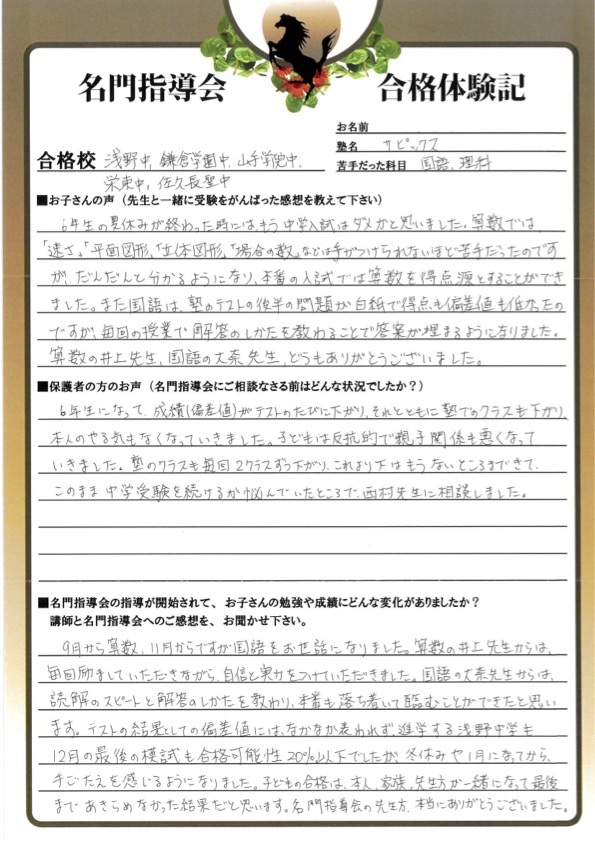 名門指導会 合格体験記
お名前
塾名 サピックス
合格校 浅野中、鎌倉学園中、山手学院中、
苦手だった科目 国語、理科
栄東中、佐久長聖中
■お子さんの声（先生と一緒に受験をがんばった感想を教えて下さい）
6年生の夏休みが終わった時には、もう中学入試はダメかと思いました。算数では、
「速さ」、「平面図形」、「立体図形」、「場合の数」などは手がつけられないほど苦手だったのです
が、だんだんと分かるようになり、本番の入試では算数を得点源とすることができ
ました。また国語は、塾のテストの後半の問題が白紙で得点も偏差値も低かったの
ですが、毎回の授業で解答のしかたを教わることで答案が埋まるようになりました。
算数の井上先生、国語の大森先生、どうもありがとうございました。
■保護者の方のお声（名門指導会にご相談なさる前はどんな状況でしたか？）
6年生になって、成績(偏差値)がテストのたびに下がり、それとともに塾でのクラスも下がり、
本人のやる気もなくなっていきました。子どもは反抗的で親子関係も悪くなって
いきました。塾のクラスも毎回2クラスずつ下がり、これより下はもうないところまできて、
このまま中学受験を続けるか悩んでいたところで、西村先生に相談しました。
■名門指導会の指導が開始されて、お子さんの勉強や成績にどんな変化がありましたか？
講師と名門指導会へのご感想を、お聞かせ下さい。
9月から算数、11月からですが国語をお世話になりました。算数の井上先生からは、
毎回励ましていただきながら、自信と実力をつけていただきました。国語の大森先生からは、
読解のスピードと解答のしかたを教わり、本番も落ち着いて臨むことができたと思い
ます。テストの結果としての偏差値には、なかなか表われず、進学する浅野中学も
12月の最後の模試も合格可能性20%以下でしたが、冬休みや1月になってから、
手ごたえを感じるようになりました。子どもの合格は、本人、家族、先生方が一緒になって最後
まであきらめなかった結果だと思います。名門指導会の先生方、本当にありがとうございました。